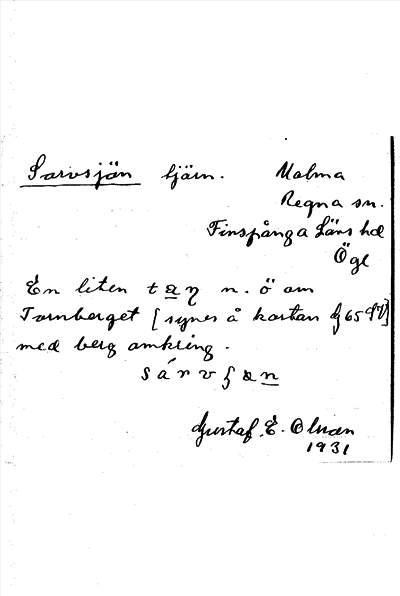 Sarvsjön tjärn. Malma
Regna sn.
Finspånga Läns hd
Ögl
En liten tạŋ n. ö om
Tornberget [synes å kartan
med berg omkring.
Gustaf. E. Olsson
1931